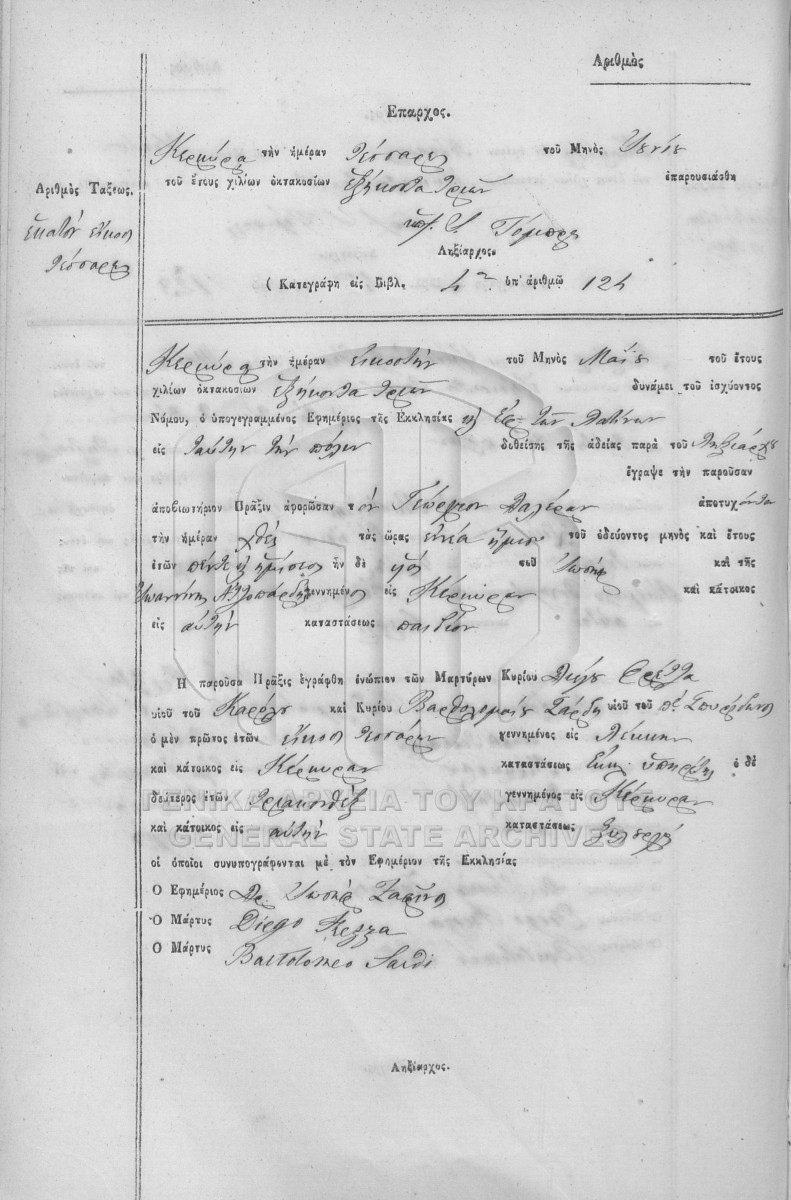 Αριθμὸς
Επαρχος.
Κερκύρα τὴν ἡμέραν τέσσαρες τοῦ Μηνὸς Ἰουνίου
τοῦ ἔτους χιλίων ὀκτακοσίων ἑξήκοντα τριῶν ἐπαρουσιάσθη
Αριθμὸς Ταξεως.
ἑκατὸν εἴκοσι
τέσσαρες
Ληξίαρχος
( Κατεγράφη εἰς Βιβλ. 4ον ὑπ' ἀριθμῷ 124
Κερκύρα τὴν ἡμέραν εἰκοστὴν τοῦ Μηνὸς Μαΐου τοῦ ἔτους
χιλίων ὀκτακοσιων ἑξήκοντα τριῶν δυνάμει τοῦ ἰσχύοντος
Νόμου, ὁ ὑπογεγραμμένος Εφημέριος τῆς Εκκλησίας τῶν Λατίνων
εἰς ταύτην τὴν πόλιν δοθείσης τῆς ἀδείας παρὰ τοῦ Ληξιάρχου
ἔγραψε τὴν παροῦσαν
ἀποβιωτήριον Πρᾶξιν ἀφορῶσαν τὸν Γεώργιον ἀποτυχόντα
τὴν ἡμέραν χθὲς τὰς ὥρας ἐννέα ἥμισυ τοῦ ὁδεύοντος μηνὸς καὶ ἔτους
ἐτῶν πέντε ἡμίσεος ἦν δὲ υἱὸς τοῦ Ἰωσὴφ καὶ τῆς
Ἰωαννίνης γεννημένος εἰς Κέρκυραν καὶ κάτοικος
εἰς αὐτὴν καταστάσεως παιδίον
Η παροῦσα Πρᾶξις ἐγράφθη ἐνώπιον τῶν Μαρτύρων Κυρίου
υἱοῦ τοῦ Καρόλου καὶ Κυρίου Βαρθολομαίου Σάρδη υἱοῦ τοῦ π. Σπυρίδωνος
ὁ μὲν πρῶτος ἐτῶν εἴκοσι τεσσάρων γεννημένος εἰς
καὶ κάτοικος εἰς Κέρκυραν καταστάσεως ὑπηρέτης ὁ δὲ
δεύτερος ἐτῶν τριακονταὲξ γεννημένος εἰς Κέρκυραν
καὶ κάτοικος εἰς αὐτὴν καταστάσεως ξυλουργὸς
οἱ ὁποῖοι συνυπογράφονται μὲ τὸν Εφημέριον τῆς Εκκλησίας
Ο Εφημέριος Ἰωσὴφ
Ο Μάρτυς Diego
Ο Μάρτυς Bartolomeo Sardi
Ληξίαρχος.
ΓΕΝΙΚΑ ΑΡΧΕΙΑ ΤΟΥ ΚΡΑΤΟΥΣ
GENERAL STATE ARCHIVES